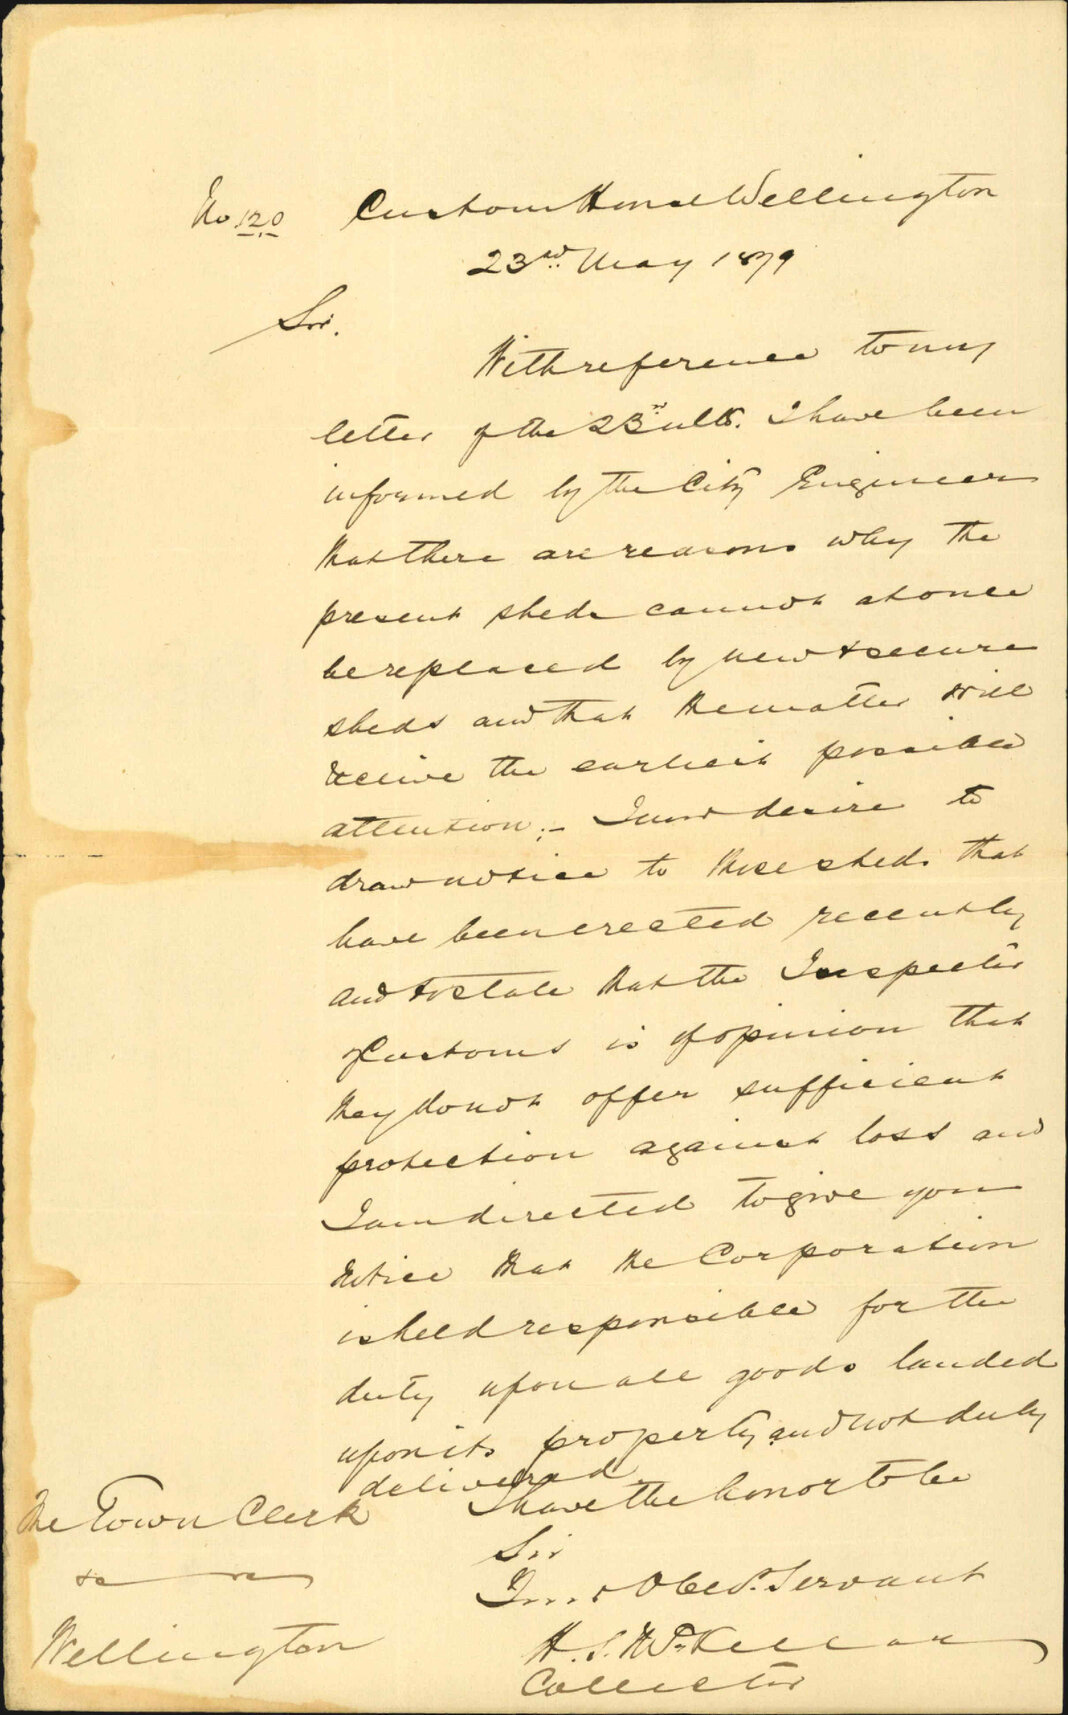 No 120 Custom House Wellington
23rd May 1879
Sir.
With reference to my
letter of the 23rd ulto. I have been
informed by the City Engineer
that there are reasons why the
present sheds cannot at once
be replaced by new & secure
sheds and that the matter will
receive the earliest possible
attention:- I now desire to
draw notice to those sheds that
have been erected recently
and to state that the Inspector
of Customs is of opinion that
they do not offer sufficient
protection against loss and
I am directed to give you
notice that the Corporation
is held responsible for the
duty upon all goods landed
upon its property and not duly
delivered
I have the honor to be
Sir
Your Obedt. Servant
H. S. McKellar
Collector
The Town Clerk
&c &c
Wellington